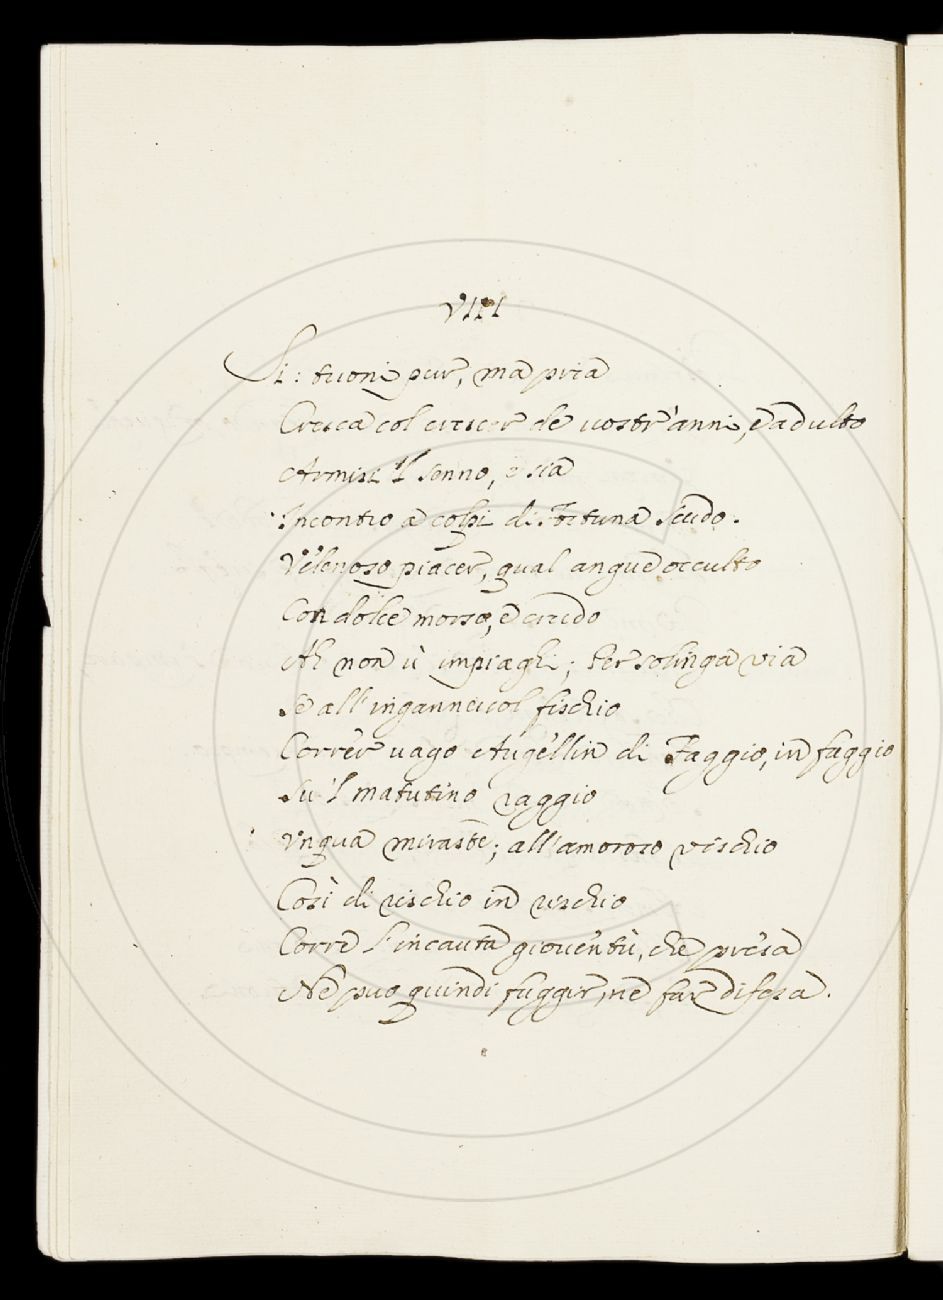 VIII
Si: tuoni pur, ma pria
Cresca col crescer de vostr'anni, e adulto
Armisi 'l senno, e sia
Incontro a colpi di Fortuna scudo.
Velenoso piacer, qual angue occulto
Con dolce morso, e crudo
Ah non vi impiaghi; Per solinga via
Se all'ingannevol fischio
Correr vago Augellin di Faggio, in faggio
Su 'l matutino raggio
Vnqua miraste; all'amoroso vischio
Così di vischio in vischio
Corre l'incauta gioventù, che presa
Nè puo quindi fuggir, nè far difesa.